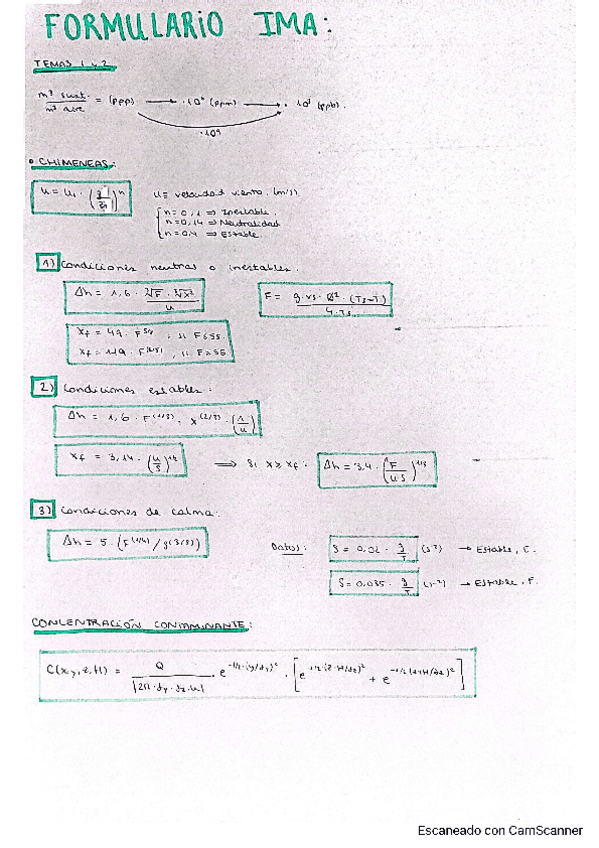 FORMULARIO IMA:
TEMAS 1 y 2
m³ sust. / m³ aire = (ppp) → ·10⁶ (ppm) → · 10³ (ppb).
·10⁹
• CHIMENEAS:
u = u₁ · (z/z₁)ⁿ
u = velocidad viento. (m/s).
n=0,1 ⇒ Inestable.
n=0,14 ⇒ Neutralidad
n=0,4 ⇒ Estable.
1) Condiciones neutras o inestables.
Δh = 1,6 · ∛F · ∛x² / u
F = g · vs · Ø² · (Ts-T) / 4 · Ts
xf = 49 · F^5/8, si F≤55.
xf = 119 · F^(2/5), si F≥55
2) Condiciones estables:
Δh = 1,6 · F^(1/3) · x^(2/3) · (1/u)
xf = 3,14 · (u/S)^1/2 ⇒ Si x ≥ xf: Δh = 3,4 · (F/u·S)^1/3
3) Condiciones de calma.
Δh = 5 · (F^(1/4) / S^(3/8))
Datos: S = 0,02 · g/T (s⁻²) → Estable, E.
S = 0,035 · g/T (s⁻²) → Estable, F.
CONCENTRACIÓN CONTAMINANTE:
C(x,y,z,H) = Q / |2π·σy·σz·u| · e^-1/2·(y/σy)² · [e^-1/2·(z-H/σz)² + e^-1/2(z+H/σz)²]
Escaneado con CamScanner